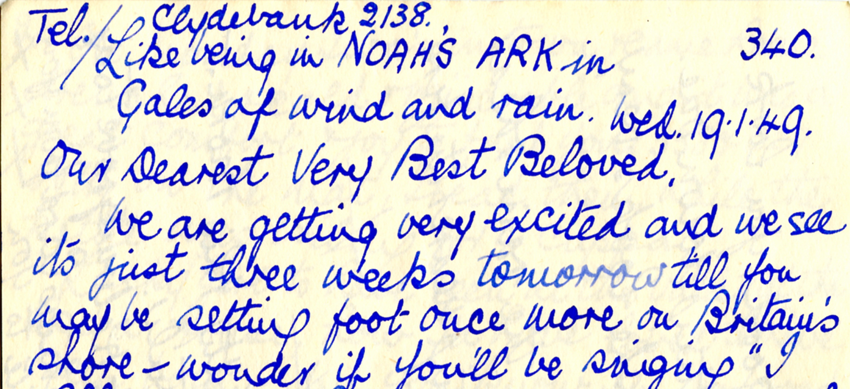 Tel./ Clydebank 2138.
Like being in NOAH'S ARK in 340.
Gales of wind and rain. Wed. 19.1.49.
Our Dearest Very Best Beloved,
We are getting very excited and we see
it's just three weeks tomorrow till you
may be setting foot once more on Britain's
shore - wonder if you'll be singing "I